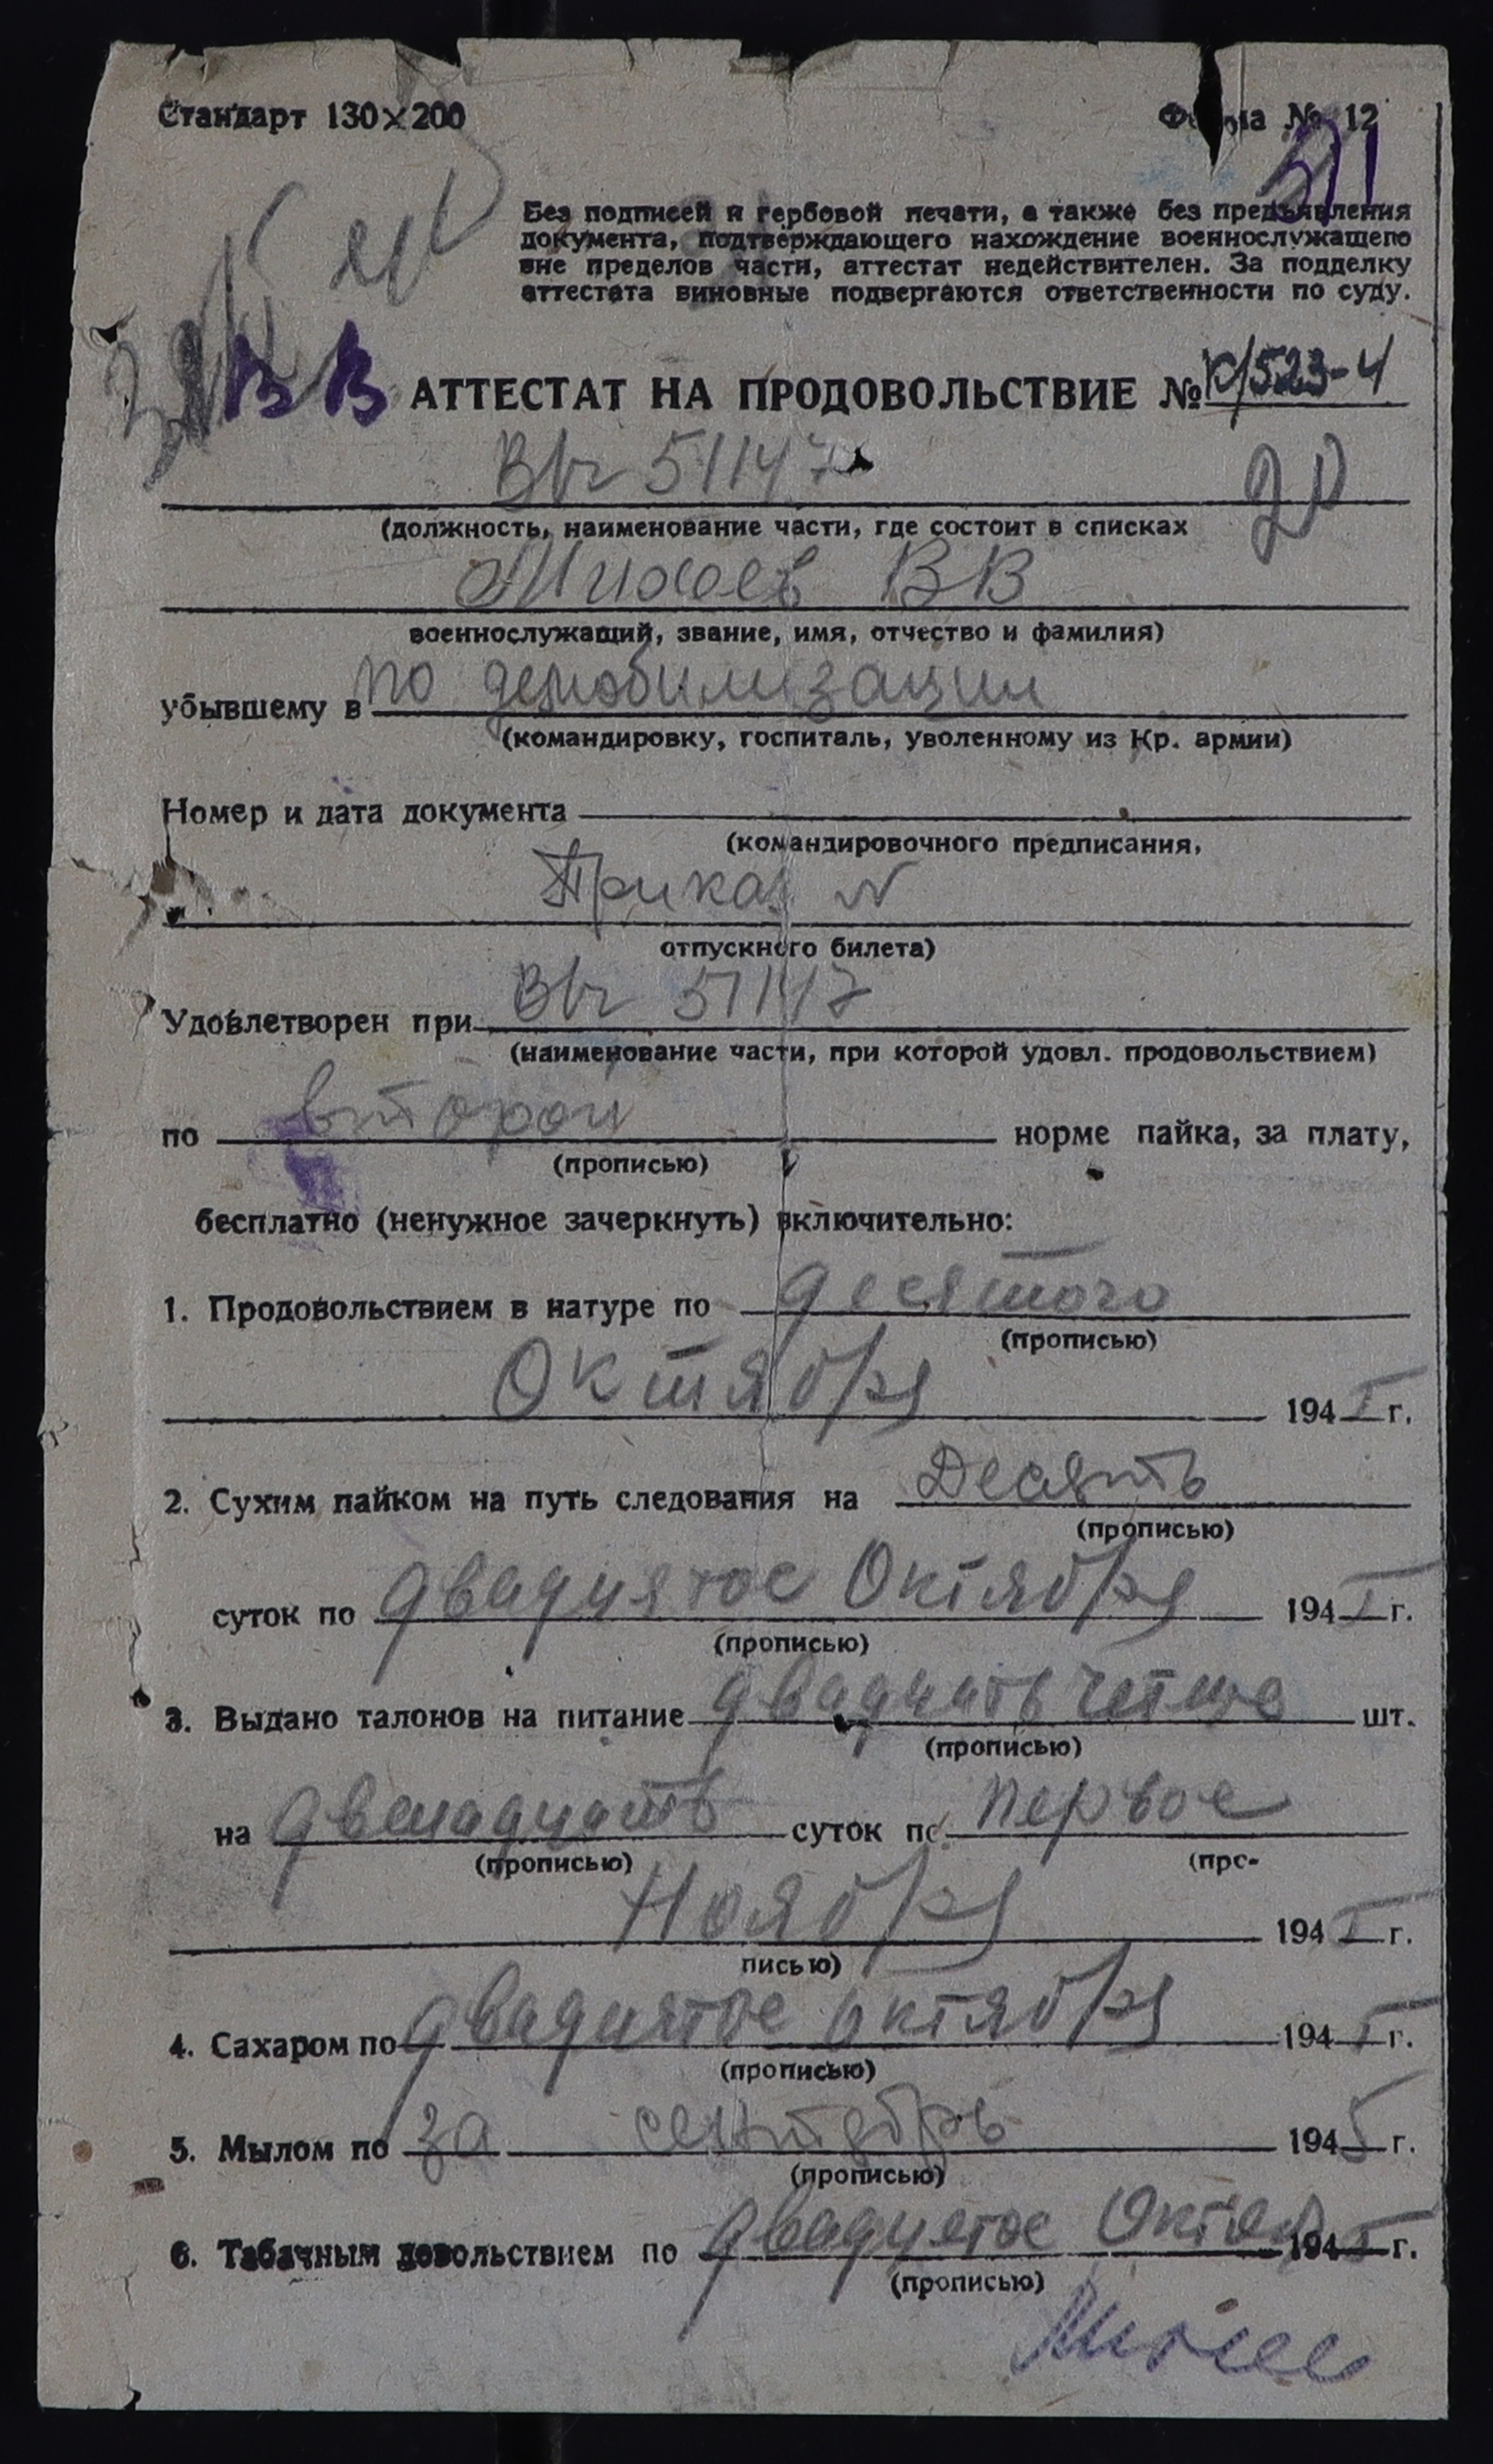 Стандарт 130×200
Форма № 12
Без подписей и гербовой печати, а также без предъявления
документа, подтверждающего нахождение военнослужащего
вне пределов части, аттестат недействителен. За подделку
аттестата виновные подвергаются ответственности по суду.
ВВ АТТЕСТАТ НА ПРОДОВОЛЬСТВИЕ № 523-4
В/ч 51147
20
(должность, наименование части, где состоит в списках
Михеев ВВ
военнослужащий, звание, имя, отчество и фамилия)
убывшему в по демобилизации
(командировку, госпиталь, уволенному из Кр. армии)
Номер и дата документа
(командировочного предписания,
Приказ №
отпускного билета)
Удовлетворен при В/ч 51147
(наименование части, при которой удовл. продовольствием)
по второй норме пайка, за плату,
(прописью)
бесплатно (ненужное зачеркнуть) включительно:
1. Продовольствием в натуре по десятого
(прописью)
Октября 1945 г.
2. Сухим пайком на путь следования на Десять
(прописью)
суток по двадцятое Октября 1945 г.
(прописью)
3. Выдано талонов на питание двадцать шт.
(прописью)
на двенадцать суток по первое
(про-
Ноября 1945 г.
писью)
4. Сахаром по двадцятое октября 1945 г.
(прописью)
5. Мылом по за сентябрь 1945 г.
(прописью)
6. Табачным довольствием по двадцятое Октяб 1945 г.
(прописью)